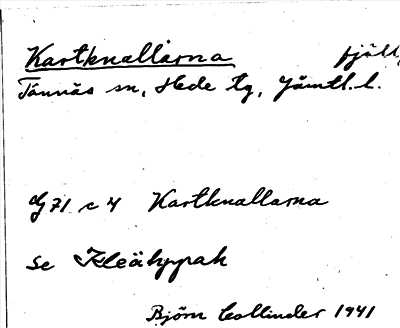 Kartknallarna fjäll,
Tännäs sn, Hede tg, Jämtl. l.
G 71 c 4 Kartknallarna
se Kleähppah
Björn Collinder 1941